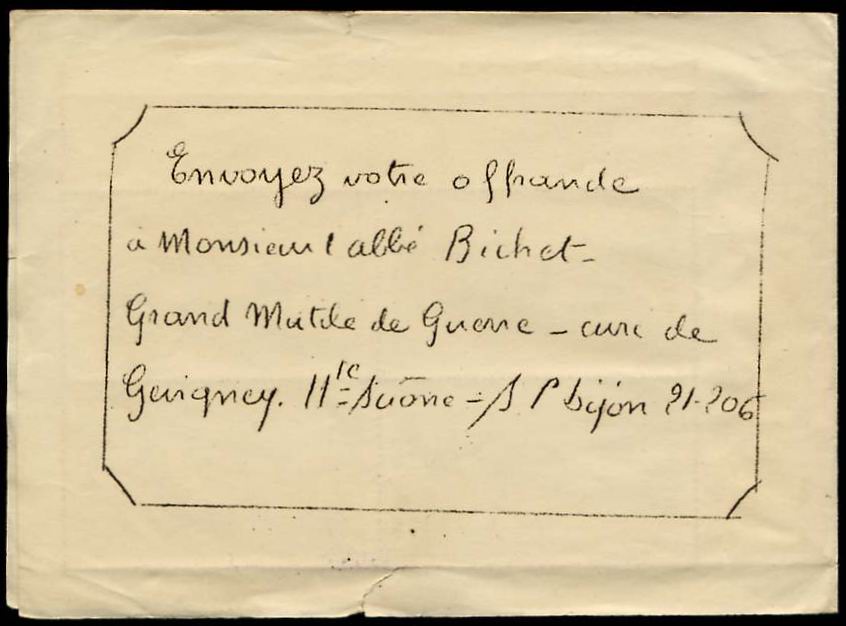 Envoyez votre offrande
à Monsieur l'abbé Bichet-
Grand Mutilé de Guerre - curé de
Gevigney. Hte Saône - Dijon 21-206